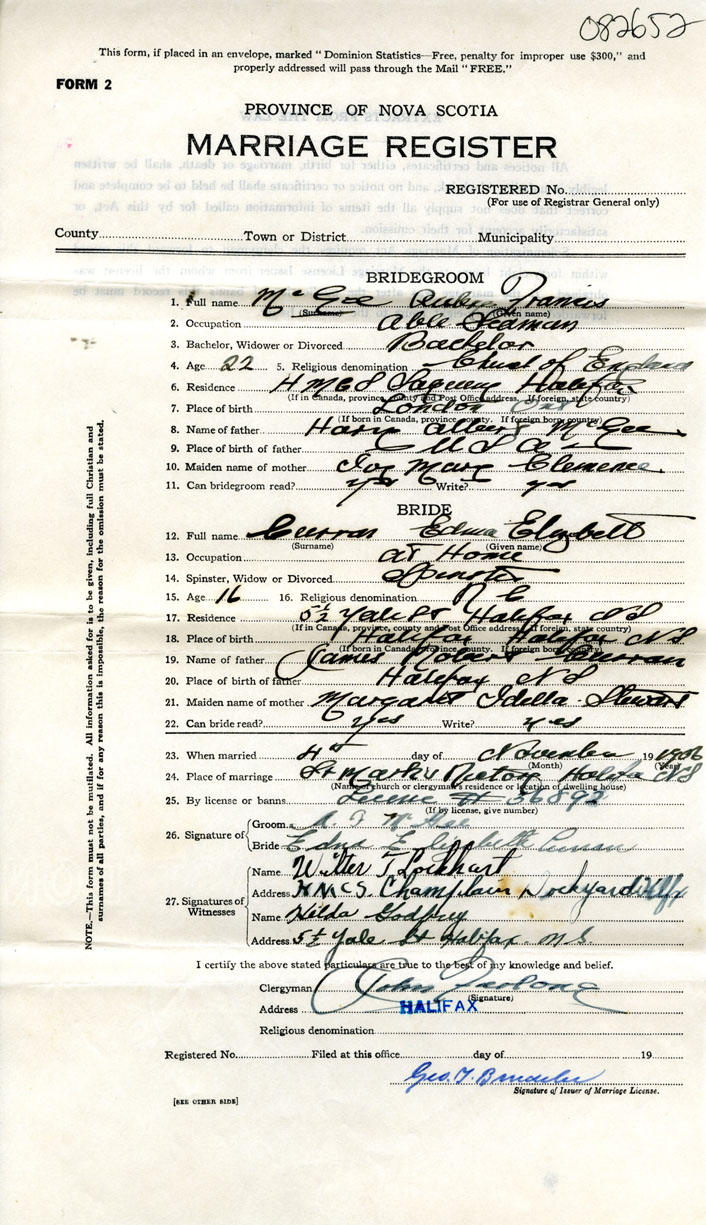 082652
This form, if placed in an envelope, marked "Dominion Statistics—Free, penalty for improper use $300," and
properly addressed will pass through the Mail "FREE."
FORM 2
PROVINCE OF NOVA SCOTIA
MARRIAGE REGISTER
REGISTERED No.
(For use of Registrar General only)
County Town or District Municipality
BRIDEGROOM
1. Full name McGee Francis
(Surname) (Given name)
2. Occupation Able Seaman
3. Bachelor, Widower or Divorced Bachelor
4. Age 22 5. Religious denomination of England
6. Residence HMCS Saguenay Halifax
(If in Canada, province, county and Post Office address. If foreign, state country)
7. Place of birth London
(If born in Canada, province, county. If foreign born, country)
8. Name of father Harry Albert McGee
9. Place of birth of father U S A
10. Maiden name of mother Mary Clemence
11. Can bridegroom read? yes Write? yes
BRIDE
12. Full name Curran Edna Elizabeth
(Surname) (Given name)
13. Occupation at Home
14. Spinster, Widow or Divorced Spinster
15. Age 16 16. Religious denomination R C
17. Residence 5½ Yale St Halifax NS
(If in Canada, province, county and Post Office address. If foreign, state country)
18. Place of birth Halifax Halifax NS
(If born in Canada, province, county. If foreign born, country)
19. Name of father James Robert Curran
20. Place of birth of father Halifax NS
21. Maiden name of mother Margaret Idella Stewart
22. Can bride read? yes Write? yes
23. When married 4th day of November 19
(Month) (Year)
24. Place of marriage St Mark's Rectory Halifax NS
(Name of church or clergyman's residence or location of dwelling house)
25. By license or banns License # 36892
(If by license, give number)
26. Signature of
Groom A F McGee
Bride Edna Elizabeth Curran
27. Signatures of Witnesses
Name Lockhart
Address HMCS. Champlain Dockyard Hlfx
Name Hilda Godfrey
Address 5½ Yale St Halifax. N.S.
I certify the above stated particulars are true to the best of my knowledge and belief.
Clergyman John Furlong
(Signature)
Address HALIFAX
Religious denomination
Registered No. Filed at this office day of 19
Geo. T.
Signature of Issuer of Marriage License.
[SEE OTHER SIDE]
NOTE.—This form must not be mutilated. All information asked for is to be given, including full Christian and
surnames of all parties, and if for any reason this is impossible, the reason for the omission must be stated.